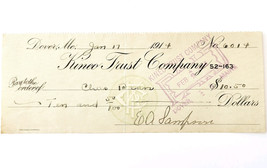 Dover, Mo. Jan 17 1914 No. 6014
Kinco Trust Company 52-163
Pay to the order of Chas $10.50
Ten and 50/100 Dollars
E A Sampson